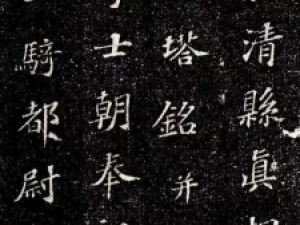 清縣眞
塔銘并
士朝奉
騎都尉